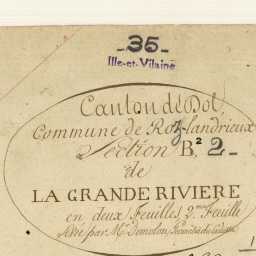 35
Ille-et-Vilaine
Canton de Dol
Commune de Roz-landrieux
Section B² 2
de
LA GRANDE RIVIERE
en deux Feuilles 2me Feuille
Levé par Mr